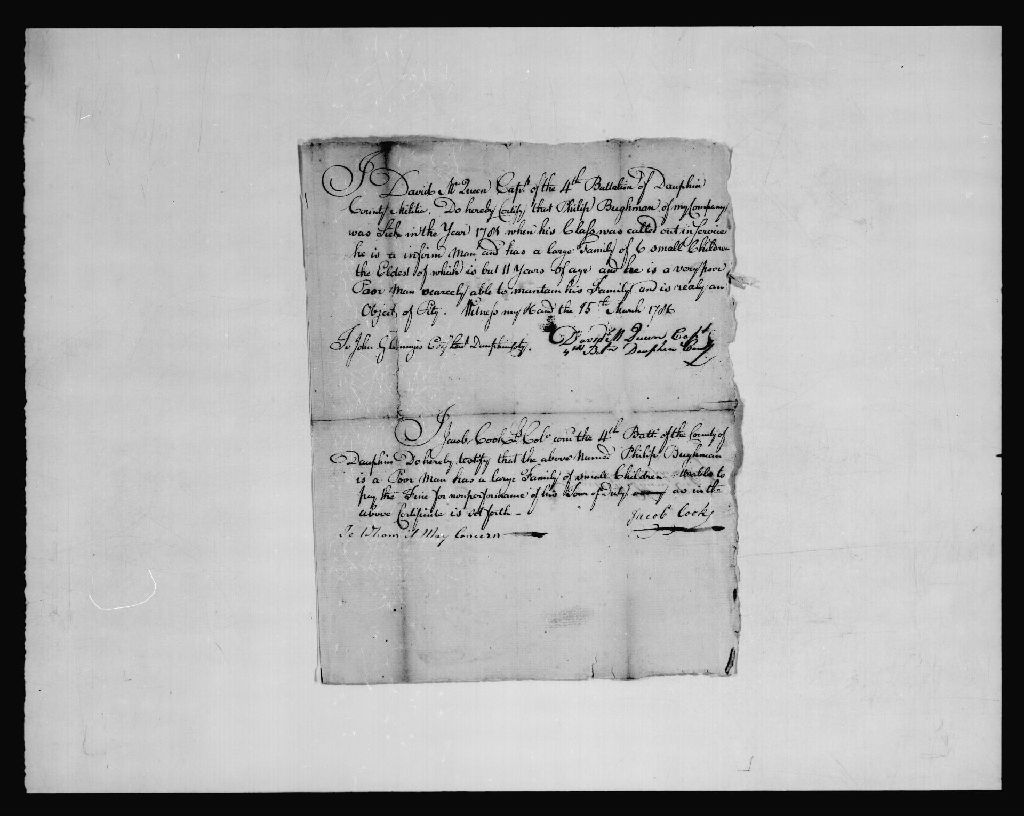 I David Mc Queen Capt. of the 4th Battalion of Dauphin
County Milita. Do hereby Certify that Philip Bughman of my Company
was Sick in the Year 1781 when his Class was called out in Service
he is a infirm Man and has a large Family of 6 small Children
the Eldest of which is but 11 Years of age and he is a very poor
Poor Man scarcely able to maintain his Family and is realy an
Object of Pity. Witness my Hand the 15th March 1786
To John Esqr Dauphin
David Mc Queen Capt
4th Batn Dauphin County
I Jacob Cook Lt Colo com the 4th Batt. of the County of
Dauphin Do hereby testify that the above Named Philip Bughman
is a Poor Man has a large Family of small Children unable to
pay the Fine for nonperformance of his Tour of Duty as in the
above Certificate is set forth
Jacob Cook
To Whom it May Concern